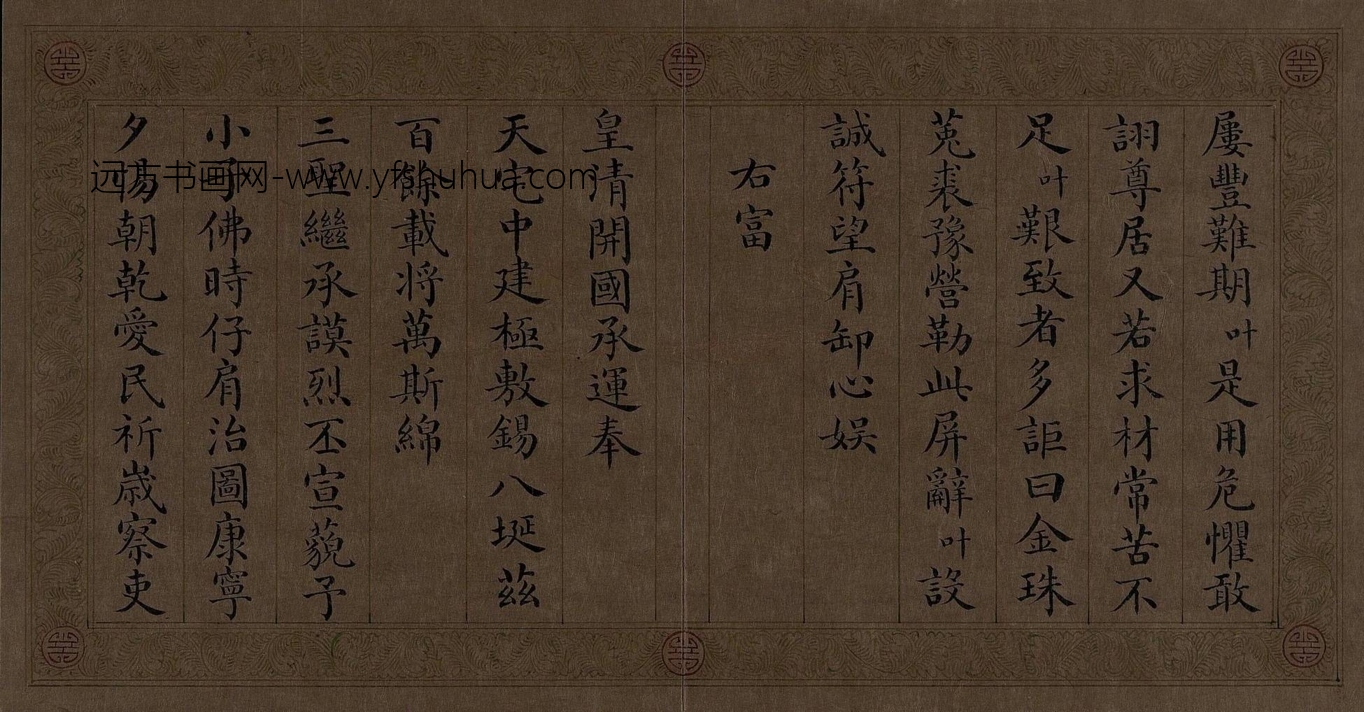 屢豐難期叶是用危懼敢
詡尊居又若求材常苦不
足叶艱致者多詎曰金珠
菟裘豫營勒此屏辭叶設
誠符望肩卸心娱
右富
皇清開國承運奉
天宅中建極敷錫八埏茲
百餘載将萬斯綿
三聖繼承謨烈丕宣藐予
小子佛時仔肩治圖康寧
夕惕朝乾愛民祈歲察吏
远古书画网-www.yfshuhua.com